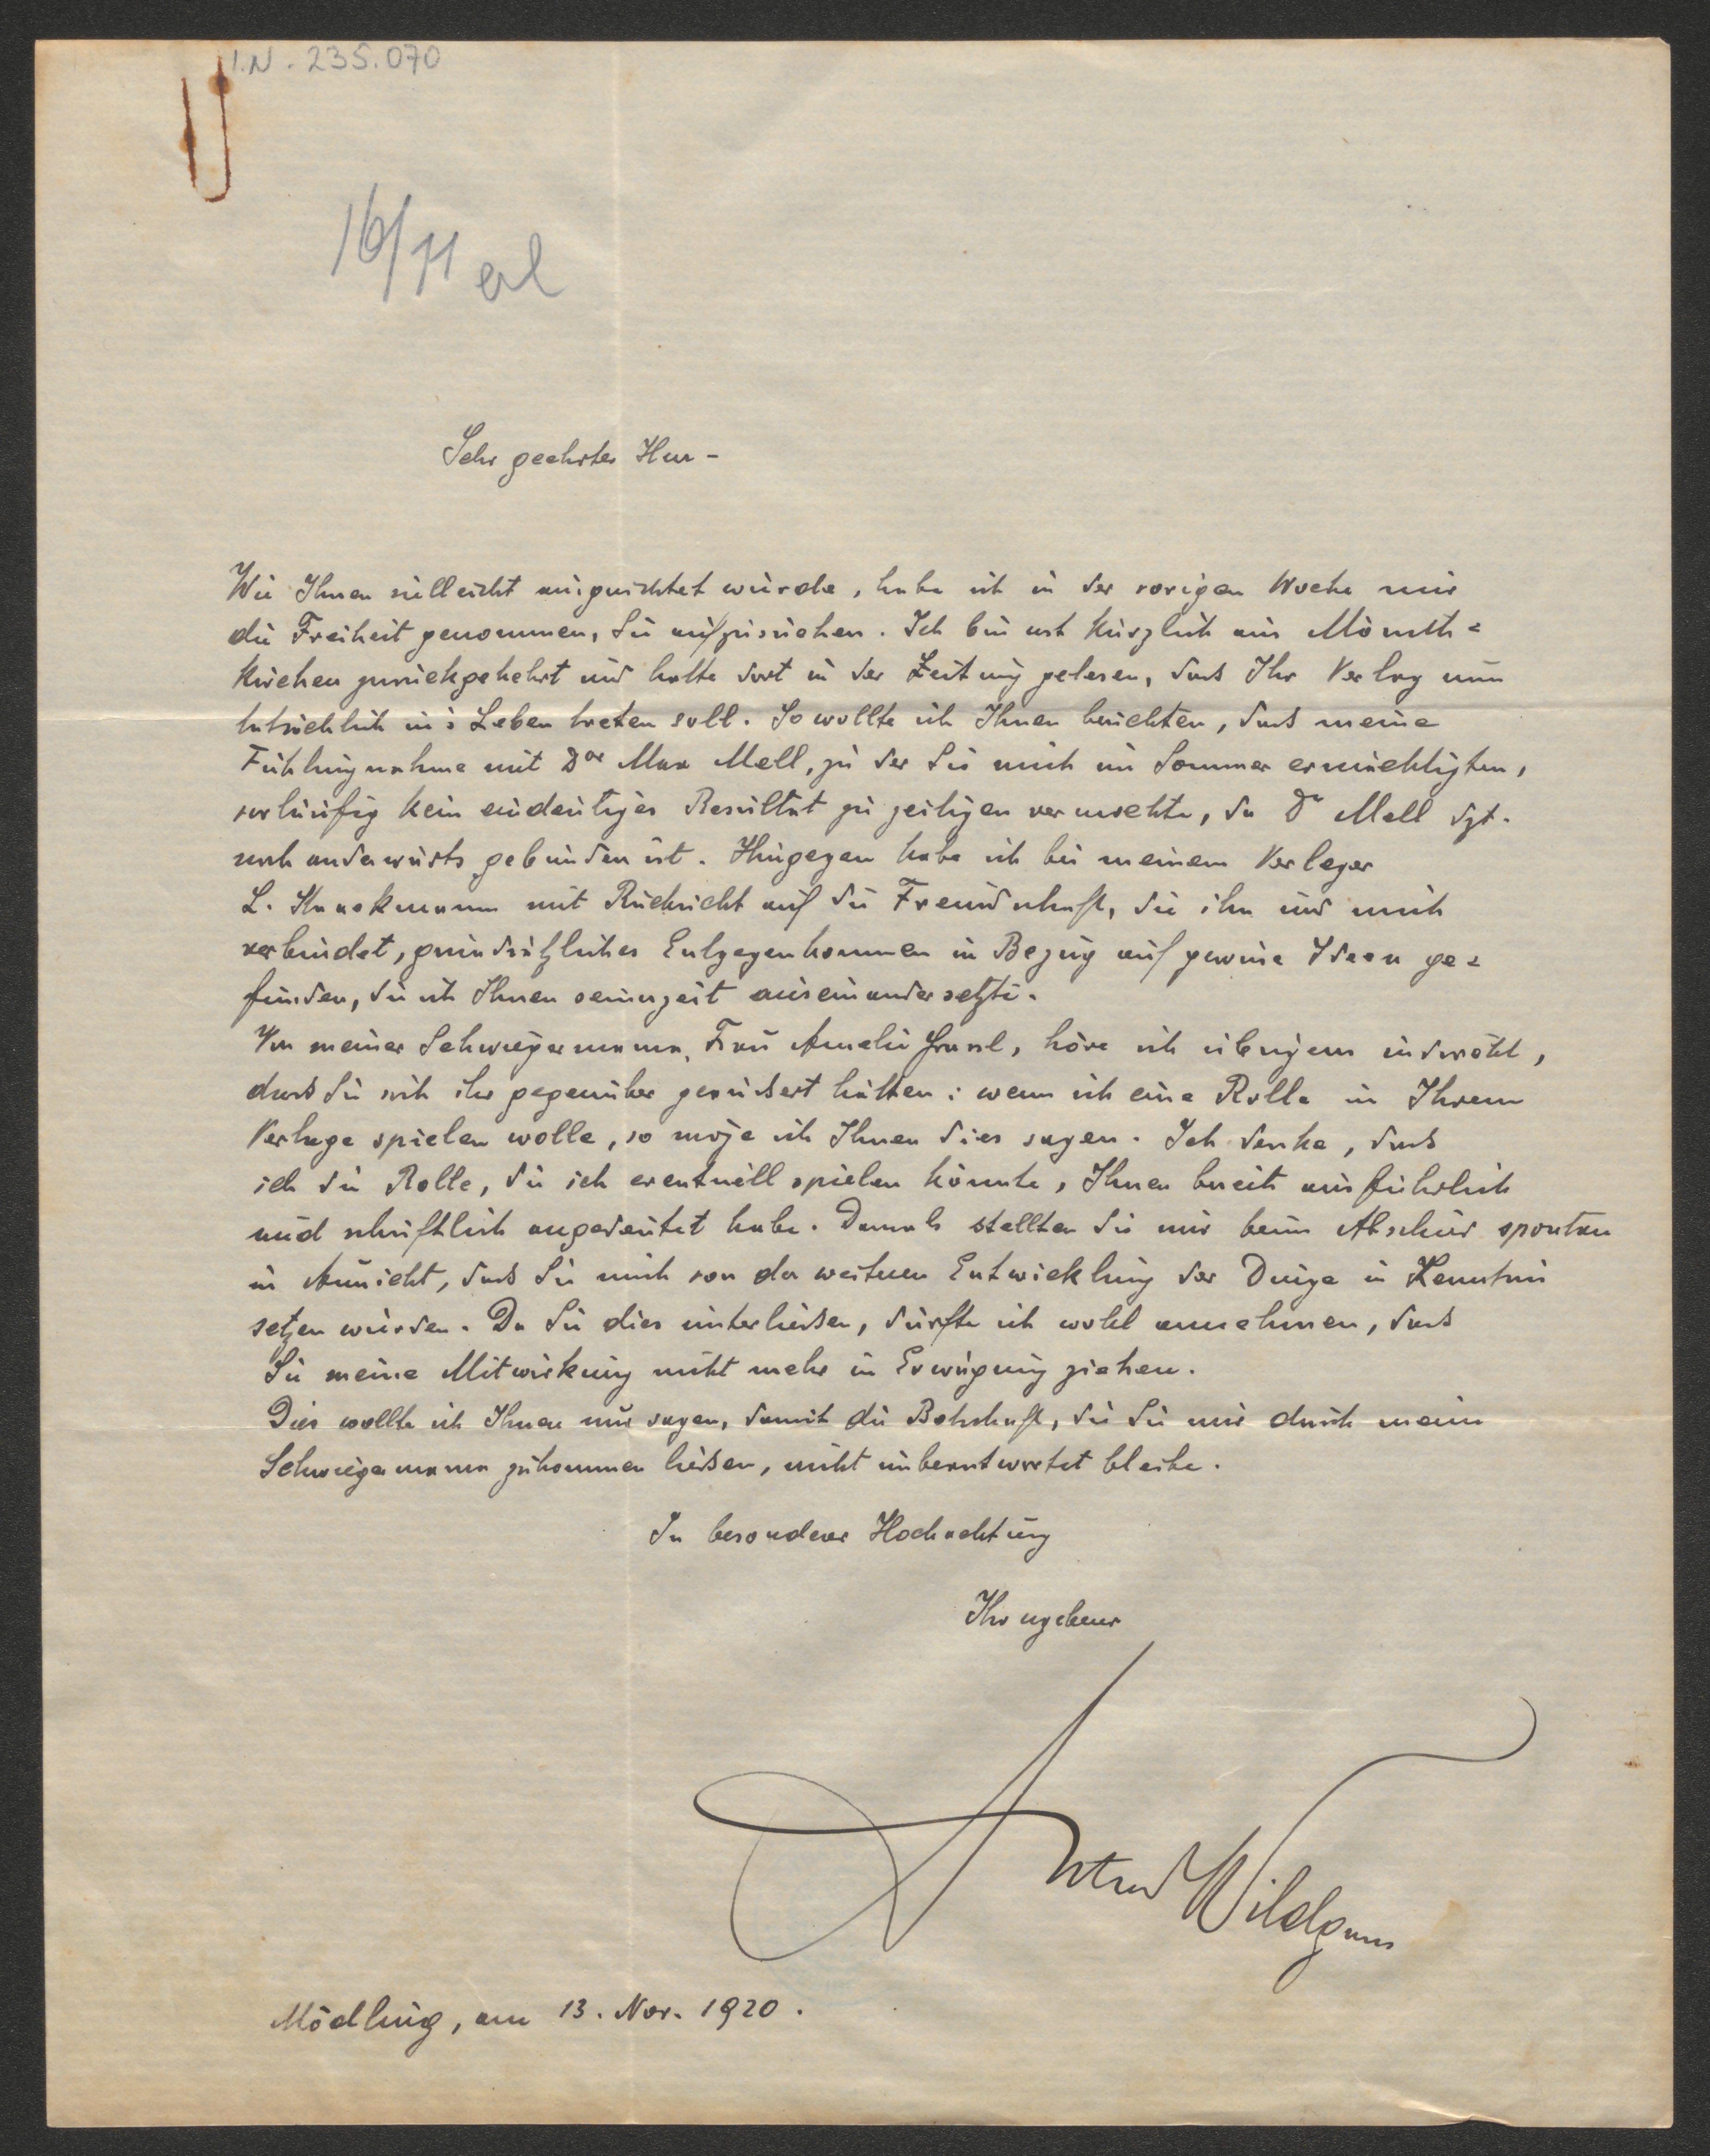 I.N. 235.070
16/11 erl
Sehr geehrter Herr –
Wie Ihnen vielleicht ausgerichtet wurde, habe ich in der vorigen Woche mir
die Freiheit genommen, Sie aufzusuchen. Ich bin erst kürzlich aus Mönich=
kirchen zurückgekehrt und hatte dort in der Zeitung gelesen, dass Ihr Verlag nun
tatsächlich in's Leben treten soll. So wollte ich Ihnen berichten, dass meine
Fühlungnahme mit Dor Max Mell, zu der Sie mich im Sommer ermächtigten,
vorläufig kein eindeutiges Resultat zu zeitigen vermochte, da Dr Mell dzt.
noch anderwärts gebunden ist. Hingegen habe ich bei meinem Verleger
L. Staackmann mit Rücksicht auf die Freundschaft, die ihn und mich
verbindet, grundsätzliches Entgegenkommen in Bezug auf gewisse Ideen ge=
funden, die ich Ihnen seinerzeit auseinandersetzte.
Von meiner Schwiegermama, Frau Amelie, höre ich übrigens indirekt,
dass Sie sich ihr gegenüber geäussert hätten: wenn ich eine Rolle in Ihrem
Verlage spielen wolle, so möge ich Ihnen dies sagen. Ich denke, dass
ich die Rolle, die ich eventuell spielen könnte, Ihnen bereits ausführlich
und schriftlich angedeutet habe. Damals stellten Sie mir beim Abschied spontan
in Aussicht, dass Sie mich von der weiteren Entwicklung der Dinge in Kenntnis
setzen würden. Da Sie dies unterliessen, durfte ich wohl annehmen, dass
Sie meine Mitwirkung nicht mehr in Erwägung ziehen.
Dies wollte ich Ihnen nur sagen, damit die Botschaft, die Sie mir durch meine
Schwiegermama zukommen liessen, nicht unbeantwortet bleibe.
In besonderer Hochachtung
Ihr ergebener
Anton Wildgans
Mödling, am 13. Nov. 1920.